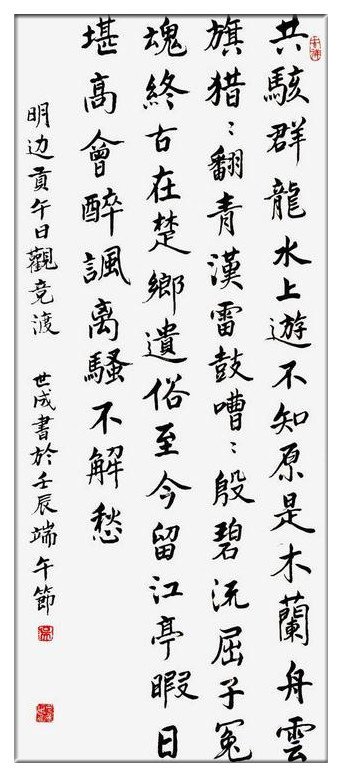 共駭群龍水上遊不知原是木蘭舟雲
旗猎〻翻青漢雷鼓嘈〻殷碧流屈子冤
魂終古在楚鄉遺俗至今留江亭暇日
堪高會醉諷离騷不解愁
明边貢午日觀竞渡 世成書於壬辰端午節